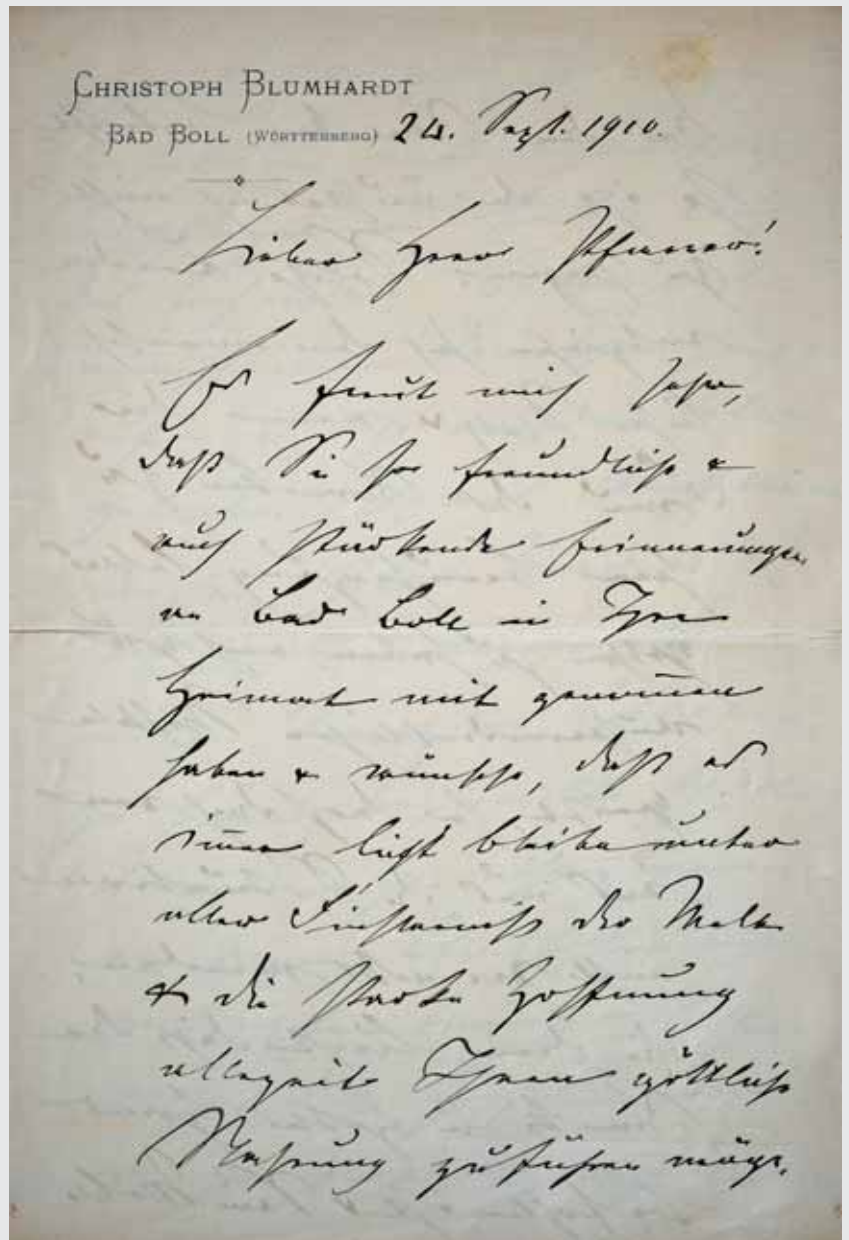 CHRISTOPH BLUMHARDT
BAD BOLL (WÜRTTEMBERG) 24. Sept. 1910.
Lieber Herr Pfarrer!
Es freut mich sehr,
daß Sie so freundliche &
auch stärkende Erinnerungen
an Bad Boll in Ihre
Heimat mit genom̅en
haben & wünsche, daß es
im̅er licht bleibe unter
aller Finsterniß der Welt
& die starke Hoffnung
allezeit Ihnen göttliche
Nahrung zuführen möge.